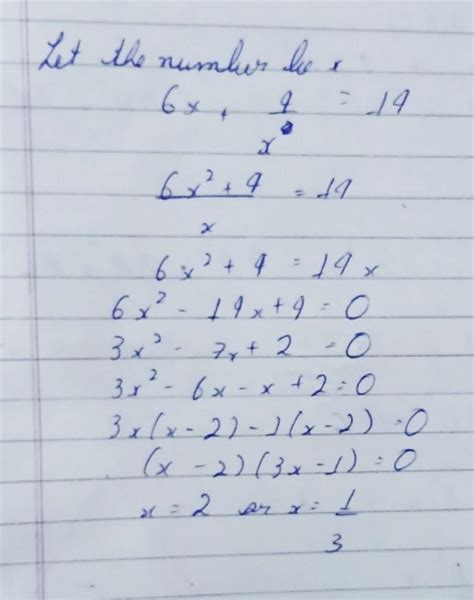 Let the number be x
6x + 4/x = 14
(6x² + 4)/x = 14
6x² + 4 = 14x
6x² - 14x + 4 = 0
3x² - 7x + 2 = 0
3x² - 6x - x + 2 = 0
3x(x - 2) - 1(x - 2) = 0
(x - 2)(3x - 1) = 0
x = 2 or x = 1/3